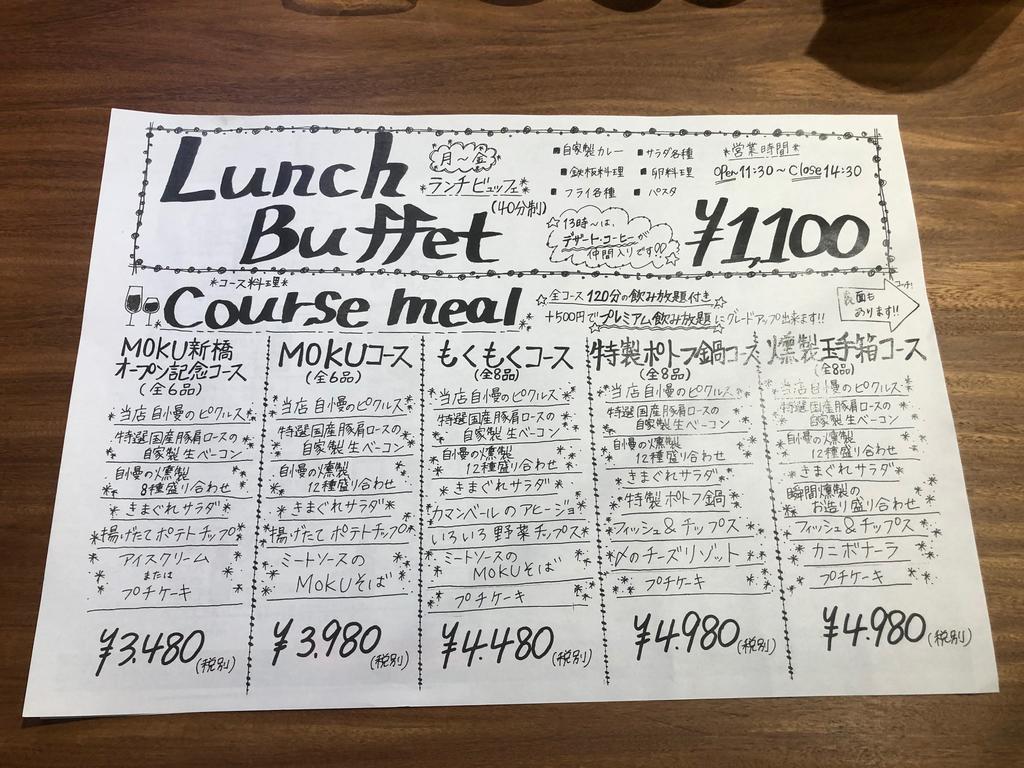 Lunch
Buffet
月〜金
*ランチビュッフェ*
(40分制)
■自家製カレー ■サラダ各種
■鉄板料理 ■卵料理
■フライ各種 ■パスタ
*営業時間*
OPEN 11:30〜Close 14:30
☆13時〜は、
デザート・コーヒーが
仲間入りです!!☆
¥1,100
*コース料理*
*Course meal*
☆全コース120分の飲み放題付き☆
+500円でプレミアム飲み放題にグレードアップ出来ます!!
裏面も
あります!!
MOKU新橋
オープン記念コース
(全6品)
*当店自慢のピクルス*
特選国産豚肩ロースの
自家製生ベーコン
自慢の燻製
8種盛り合わせ
*きまぐれサラダ*
*揚げたてポテトチップ*
アイスクリーム
または
プチケーキ
¥3.480(税別)
MOKUコース
(全6品)
*当店自慢のピクルス*
特選国産豚肩ロースの
自家製生ベーコン
自慢の燻製
12種盛り合わせ
*きまぐれサラダ*
*揚げたてポテトチップ*
ミートソースの
MOKUそば
¥3.980(税別)
もくもくコース
(全8品)
*当店自慢のピクルス*
特選国産豚肩ロースの
自家製生ベーコン
自慢の燻製
12種盛り合わせ
*きまぐれサラダ*
カマンベールのアヒージョ
いろいろ野菜チップス
ミートソースの
MOKUそば
プチケーキ
¥4.480(税別)
特製ポトフ鍋コース
(全8品)
*当店自慢のピクルス*
特選国産豚肩ロースの
自家製生ベーコン
自慢の燻製
12種盛り合わせ
*きまぐれサラダ*
特製ポトフ鍋
フィッシュ&チップス
〆のチーズリゾット
プチケーキ
¥4.980(税別)
燻製玉手箱コース
(全8品)
*当店自慢のピクルス*
特選国産豚肩ロースの
自家製生ベーコン
自慢の燻製
12種盛り合わせ
*きまぐれサラダ*
瞬間燻製の
お造り盛り合わせ
フィッシュ&チップス
カニボナーラ
プチケーキ
¥4.980(税別)